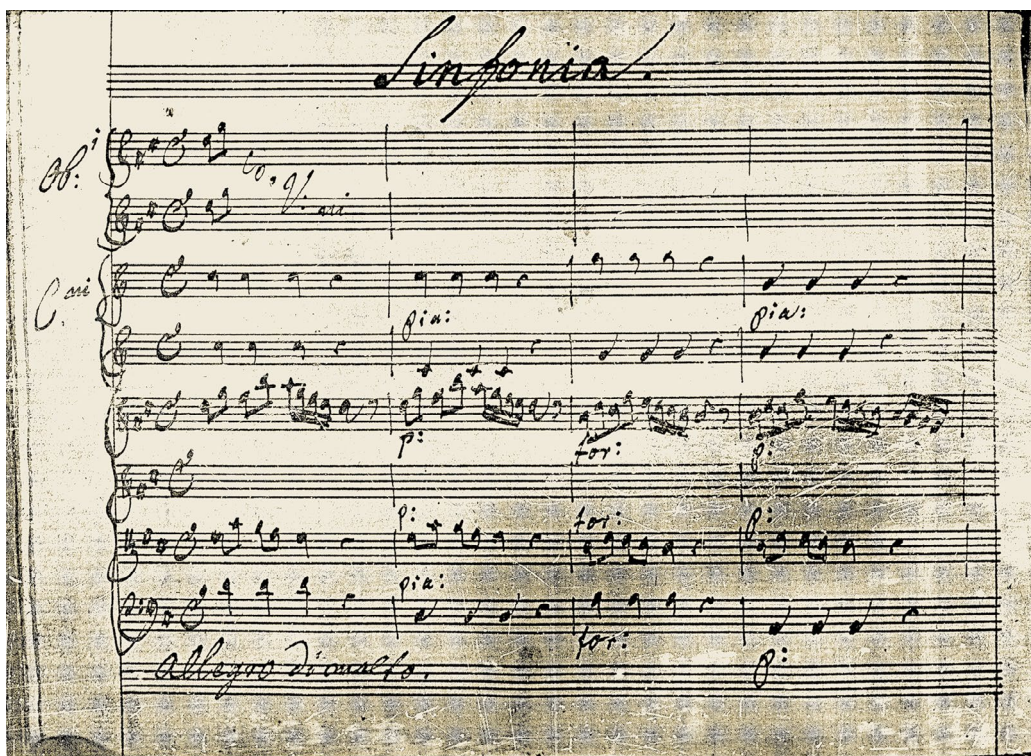 Sinfonia.
Ob: i
Co. V. ni
C. ni
pia: pia:
p: for: p:
p: for: p:
pia: for: p:
Allegro di molto.